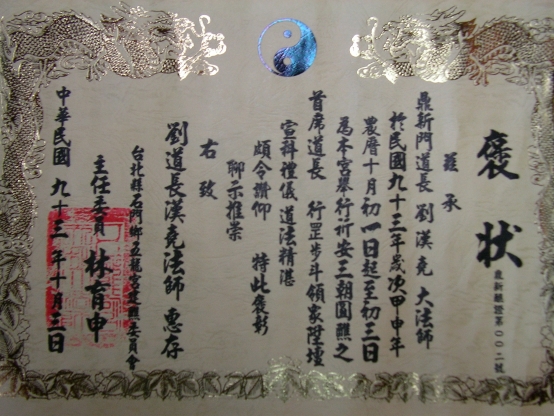 褒狀
鼎新醮證第〇〇二號
茲承
鼎新門道長 劉漢堯 大法師
於民國九十三年歲次甲申年
農曆十月初一日起至初三日
為本宮舉行卅安三朝圓醮之
首席道長 行罡步斗領眾陞壇
宣科禮儀 道法精湛
頗令讚仰 特此褒彰
聊示推崇
右致
劉道長漢堯法師 惠存
台北縣石門鄉五龍宮建醮委員會
主任委員 林育申
中華民國 九十三年十月三日